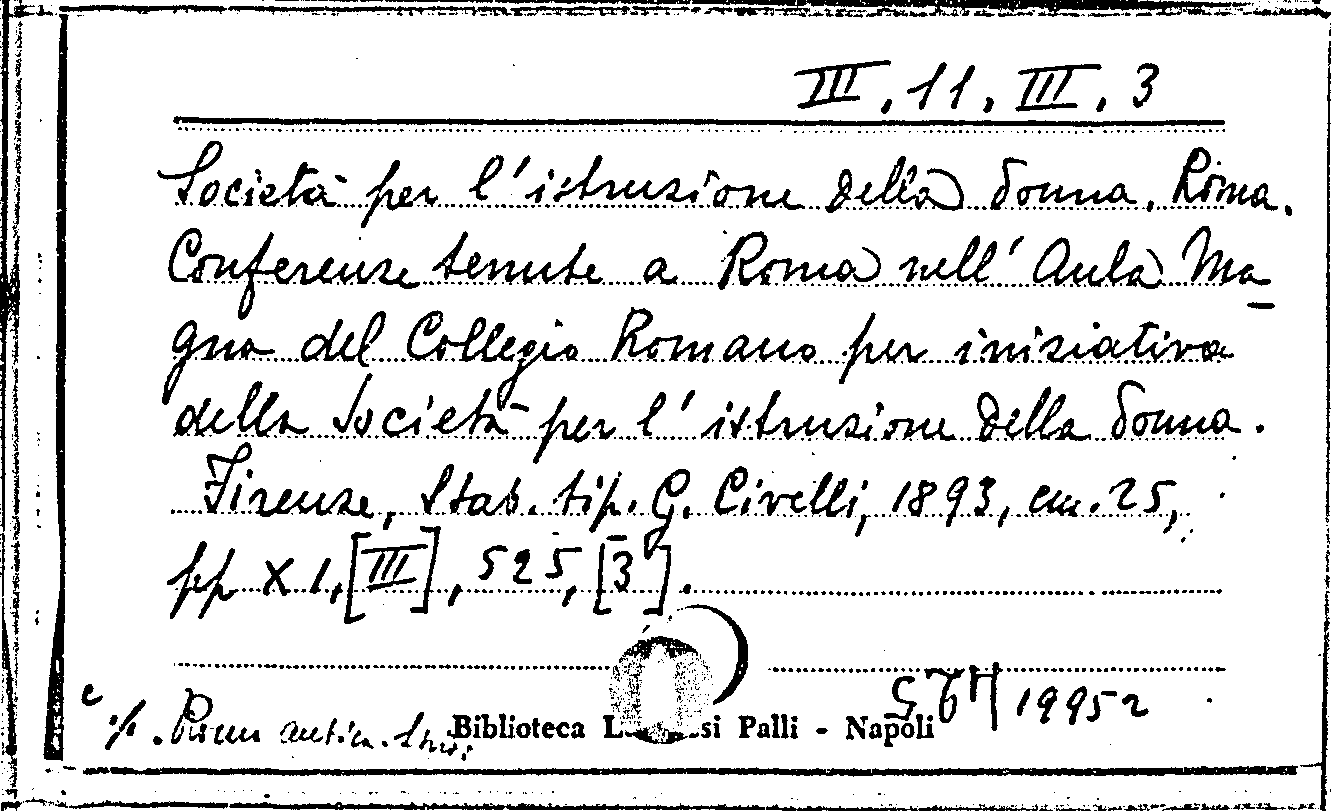 III.11.III.3
Società per l'istruzione della donna. Roma.
Conferenze tenute a Roma nell'Aula Ma
gna del Collegio Romano per iniziativa
della Società per l'istruzione della donna.
Firenze, Stab. tip. G. Civelli, 1893, cm. 25,
pp XI, [III], 525, [3].
19952
Roma antica.
Biblioteca L si Palli - Napoli